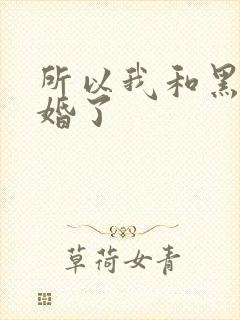 所以我和黑
婚了
草荷女青